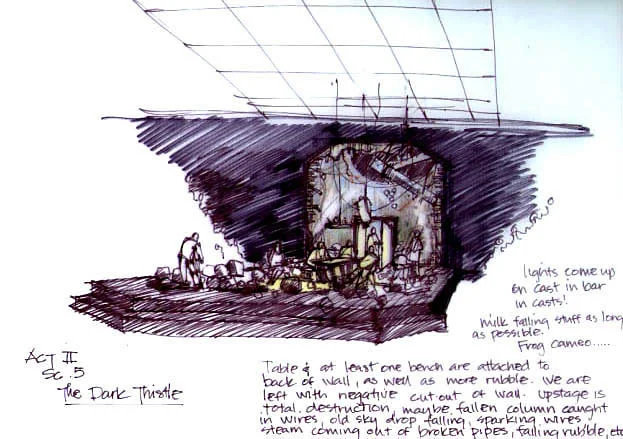 lights come up
on cast in bar
in casts!
Milk falling stuff as long
as possible.
Frog cameo.....
Act II
Sc. 5
The Dark Thistle
Table & at least one bench are attached to
back of wall, as well as more rubble. We are
left with negative cut out of wall. Upstage is
total destruction, maybe fallen column caught
in wires, old sky drop falling, sparking wires
steam coming out of broken pipes, falling rubble, etc